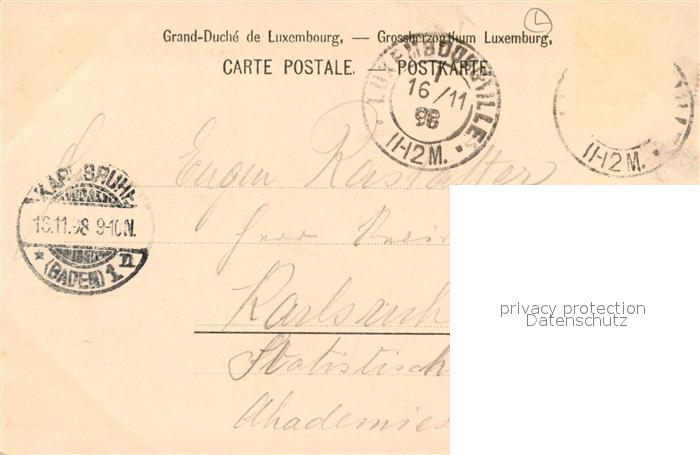 Grand-Duché de Luxembourg, — Grossherzogthum Luxemburg,
CARTE POSTALE. — POSTKARTE.
LUXEMBOURG-VILLE
16/11
98
11-12 M.
11-12 M.
Eugen Rastatter
KARLSRUHE
16.11.98 9-10N.
* (BADEN) 1 n
Herr
Karlsruh
Statistisch
Akademies
privacy protection
Datenschutz